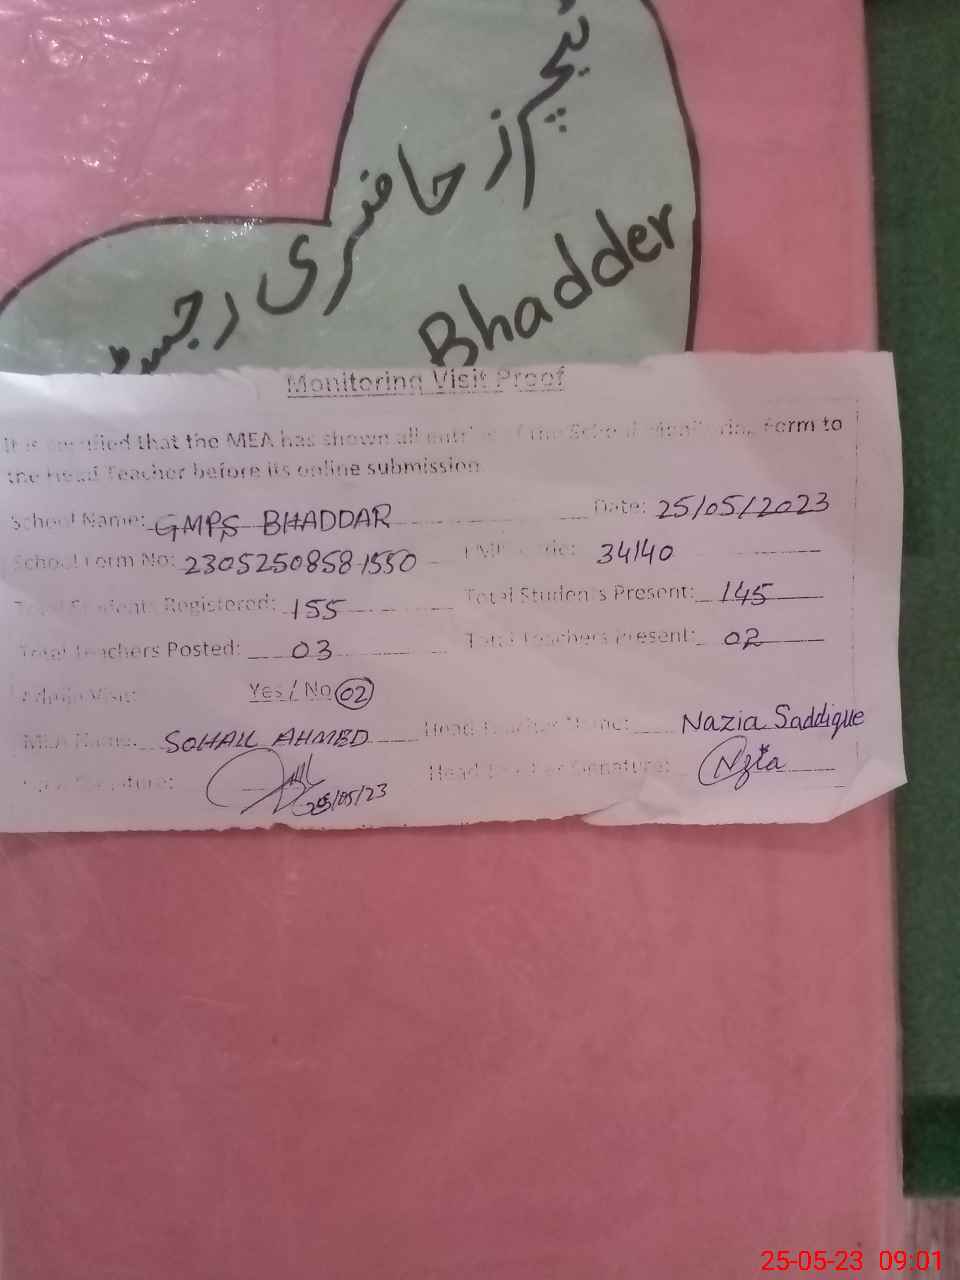 ٹیچرز حاضری رجسٹر
Bhadder
Monitoring Visit Proof
It is certified that the MEA has shown all entries of the School Monitoring Form to
the Head Teacher before its online submission
School Name: GMPS BHADDAR Date: 25/05/2023
School Form No: 23052508581550 34140
Total Students Registered: 155 Total Students Present: 145
Total Teachers Posted: 03 Total Teachers Present: 02
Admin Visit: Yes / No 02
MEA Name: SOHAIL AHMED Head Teacher Name: Nazia Saddique
Signature: 25/05/23 Head Teacher Signature: Nzia
25-05-23 09:01